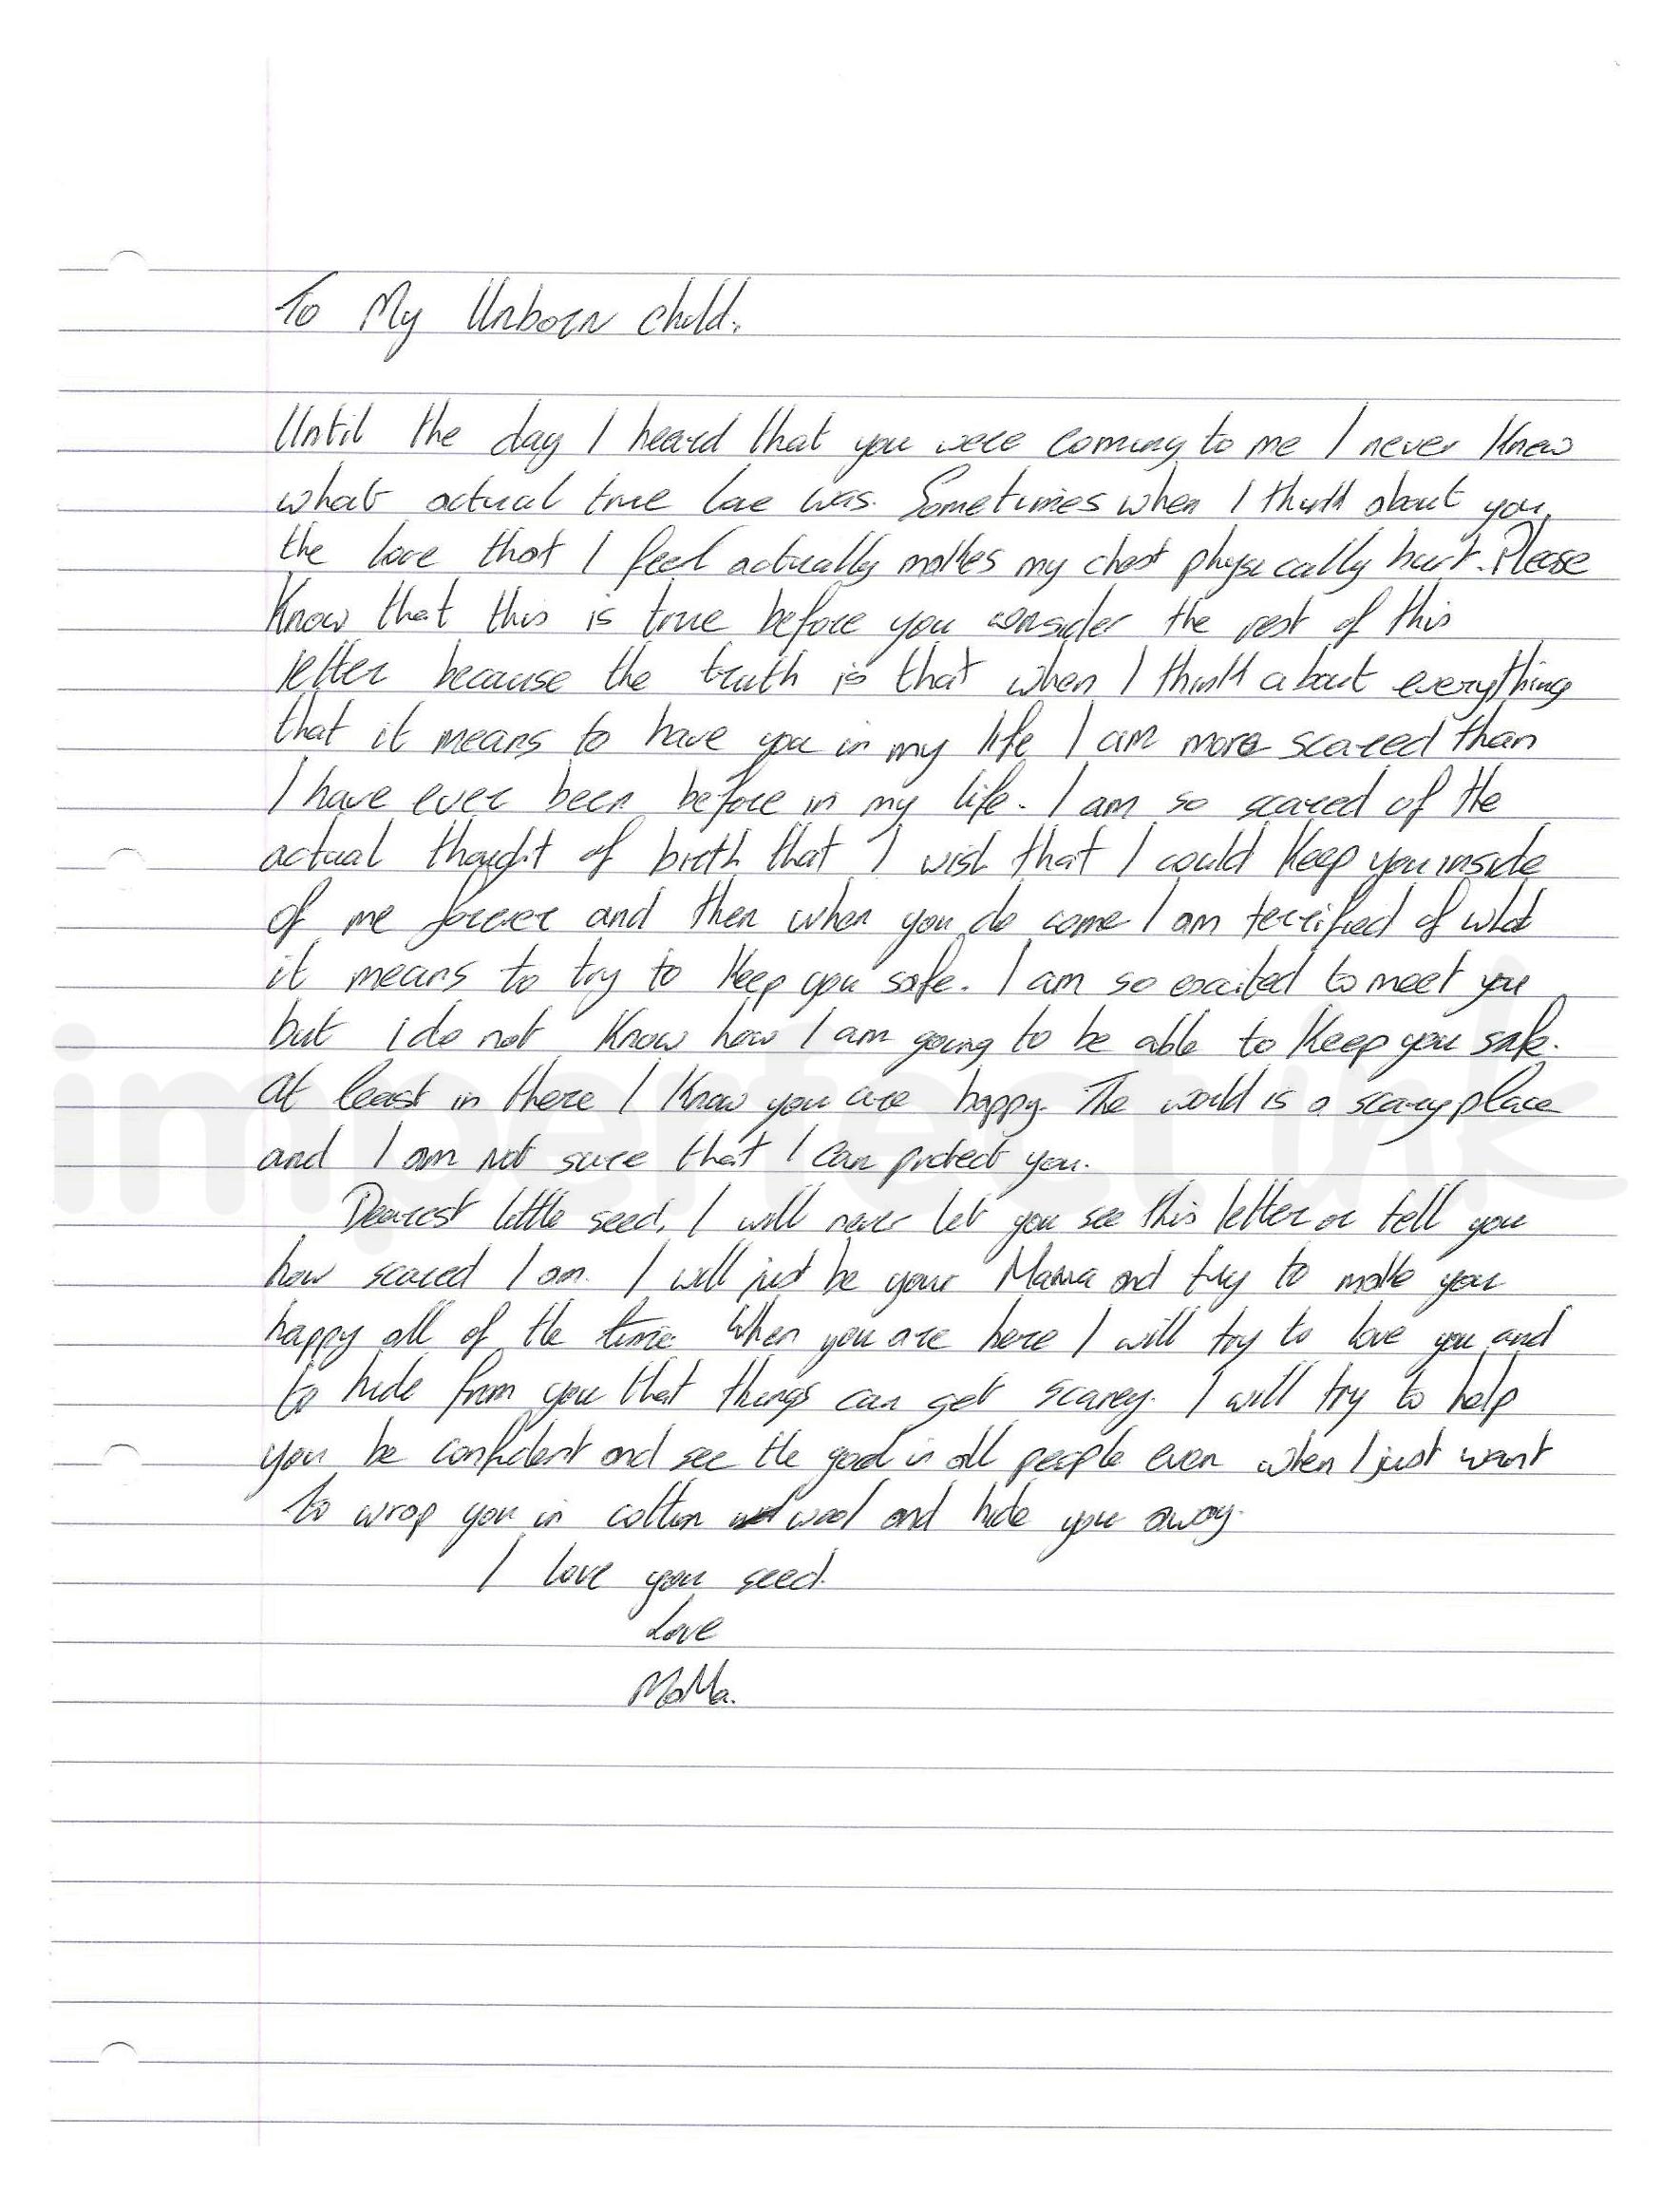 To My Unborn child.
Until the day I heard that you were coming to me I never knew
what actual true love was. Sometimes when I think about you,
the love that I feel actually makes my chest physically hurt. Please
know that this is true before you consider the rest of this
letter because the truth is that when I think about everything
that it means to have you in my life I am more scared than
I have ever been before in my life. I am so scared of the
actual thought of birth that I wish that I could keep you inside
of me forever and then when you do come I am terrified of what
it means to try to keep you safe. I am so excited to meet you
but i do not know how I am going to be able to keep you safe.
at least in there I know you are happy. The world is a scary place
and I am not sure that I can protect you.
Dearest little seed, I will never let you see this letter or tell you
how scared I am. I will just be your Mama and try to make you
happy all of the time. When you are here I will try to love you and
to hide from you that things can get scarey. I will try to help
you be confident and see the good in all people even when I just want
to wrap you in cotton wool and hide you away.
I love you seed.
Love
MaMa.
imperfect ink